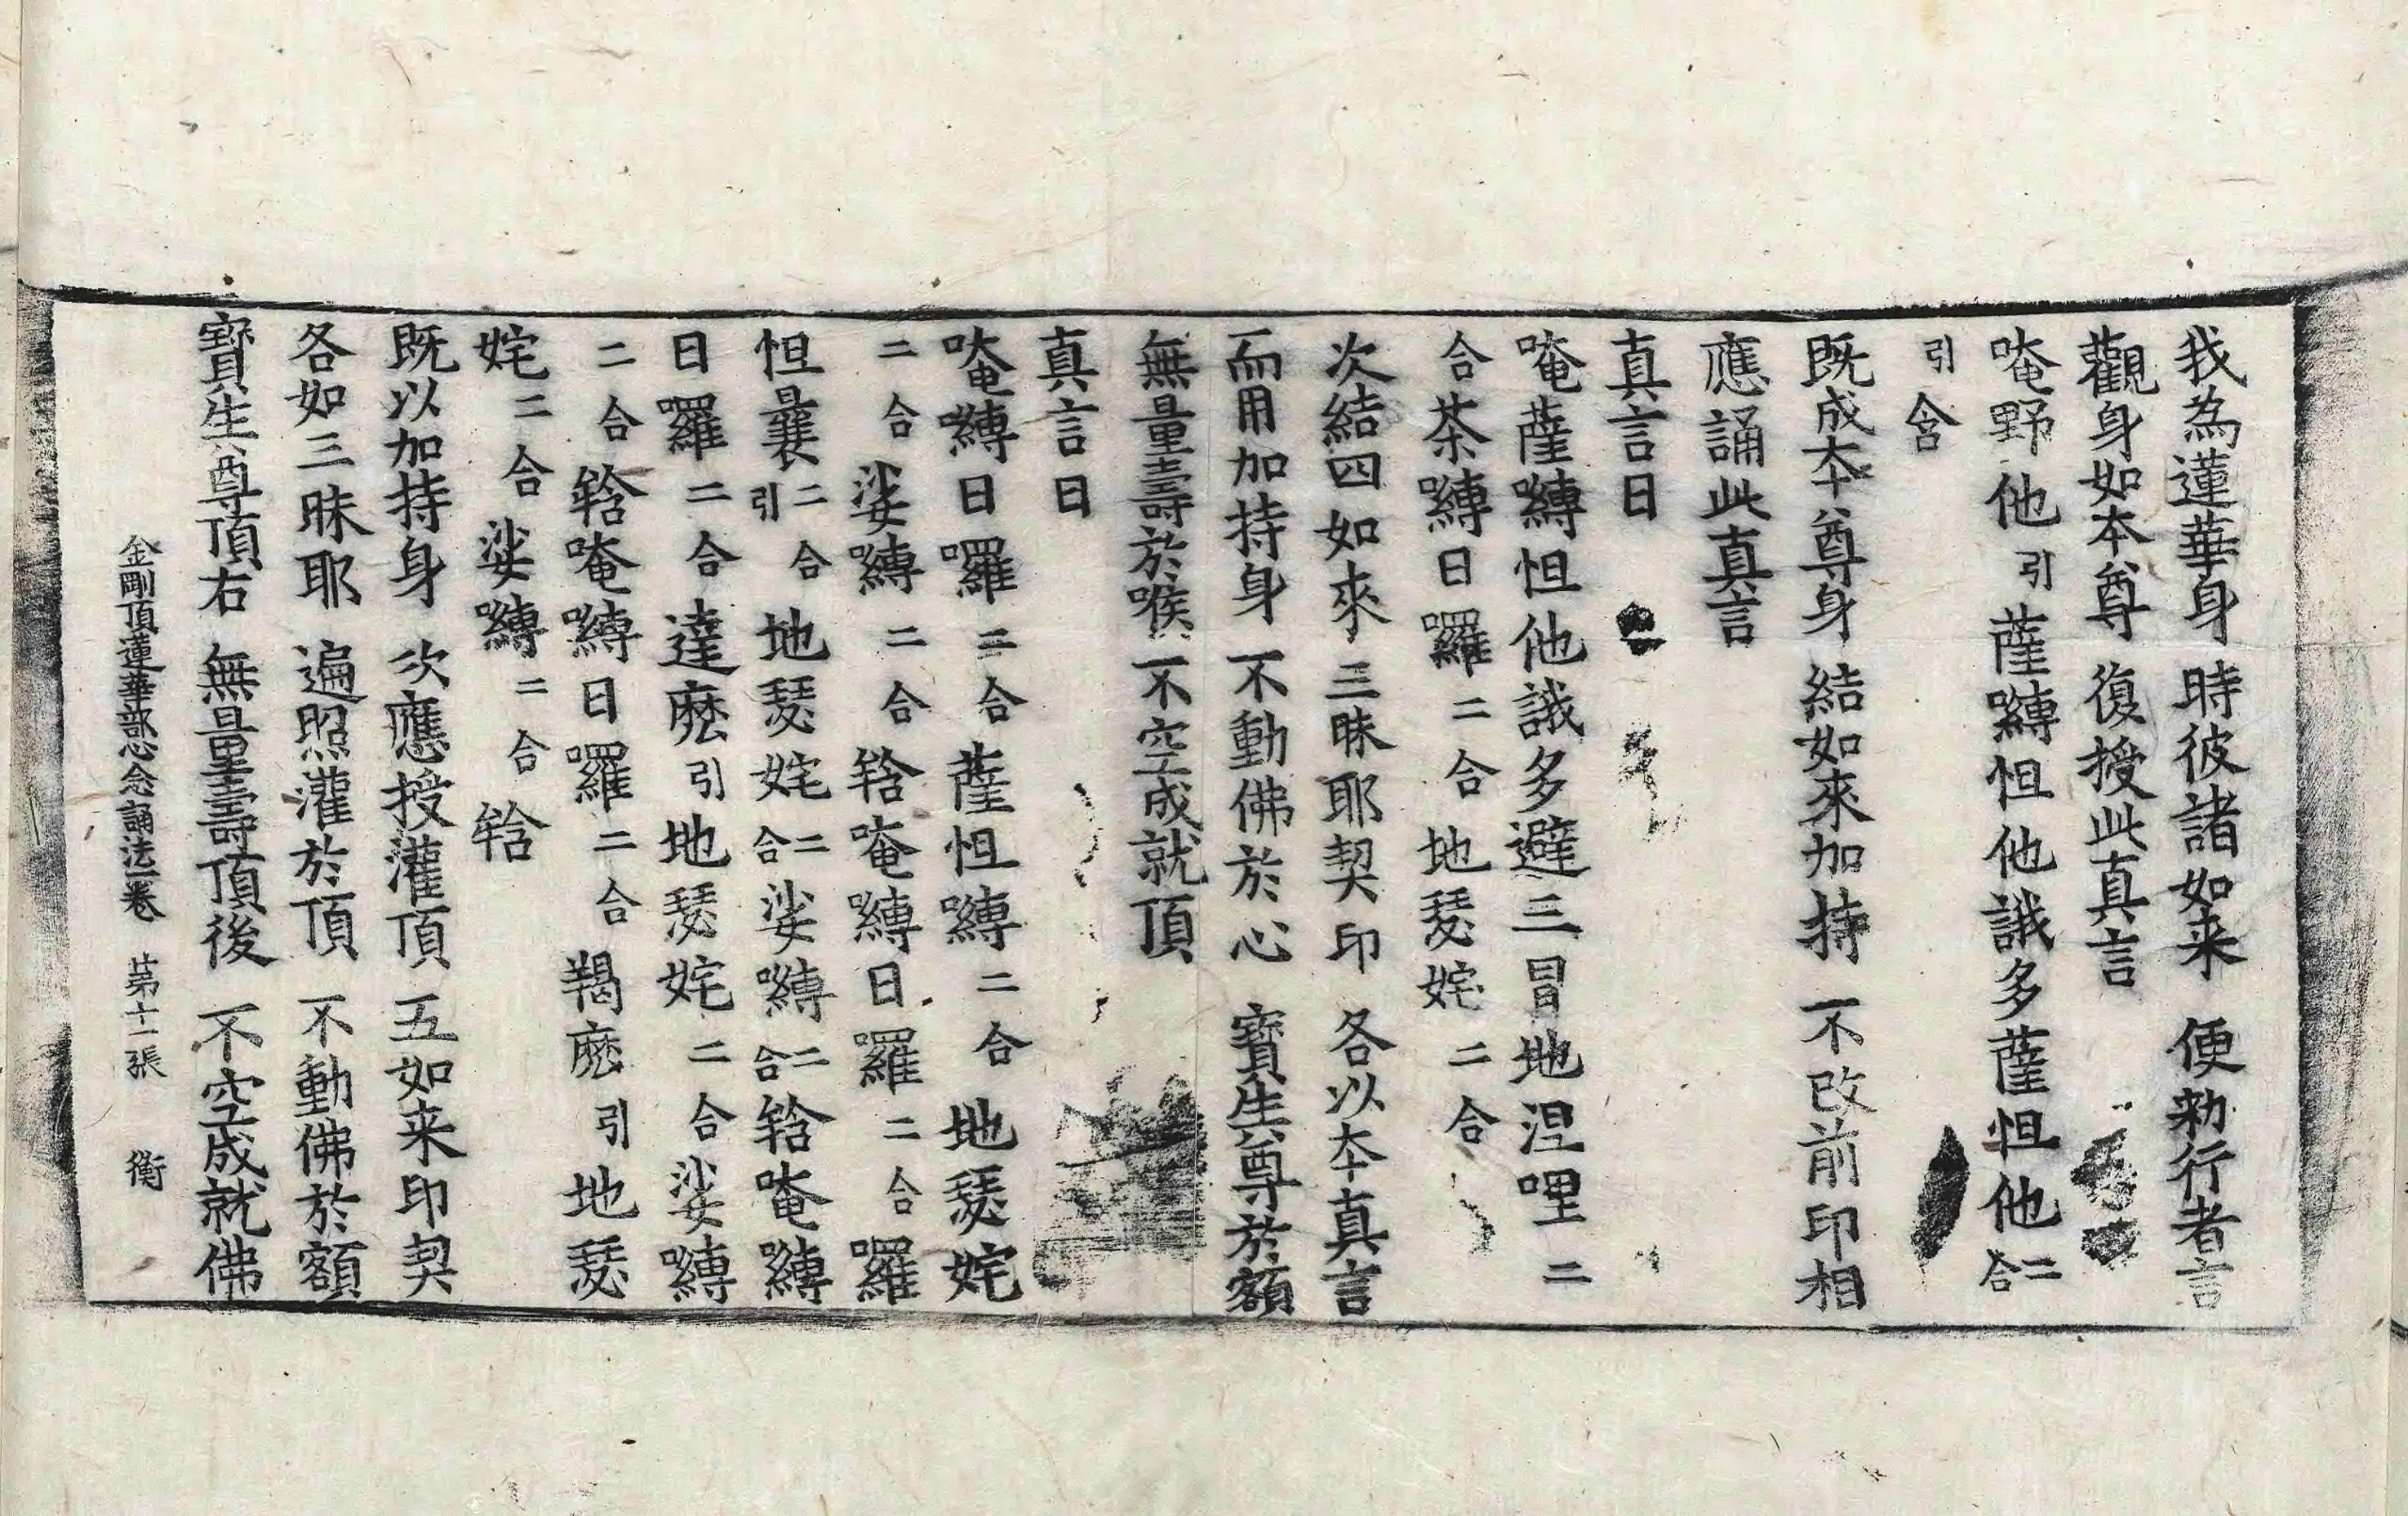 我為蓮華身 時彼諸如来 便勑行者言
觀身如本尊 復授此真言
唵野他引薩嚩怛他誐多薩怛他二合
引含
既成夲尊身 結如來加持 不改前印相
應誦此真言
真言曰
唵薩嚩怛他誐多避三冒地涅哩二
合茶嚩日囉二合地瑟姹二合
次結四如來 三昧耶契印 各以夲真言
而用加持身 不動佛於心 寶生尊於額
無量壽於喉 不空成就頂
真言曰
唵嚩日囉二合薩怛嚩二合地瑟姹
二合娑嚩二合𤚥唵嚩日囉二合囉
怛曩二合引地瑟姹二合娑嚩二合𤚥唵嚩
日囉二合達麽引地瑟姹二合娑嚩
二合𤚥唵嚩日囉二合羯麽引地瑟
姹二合娑嚩二合𤚥
既以加持身 次應授灌頂 五如来印契
各如三昧耶 遍照灌於頂 不動佛於額
寶生尊頂右 無量壽頂後 不空成就佛
金剛頂蓮華部心念誦法一卷 苐十一張 衡